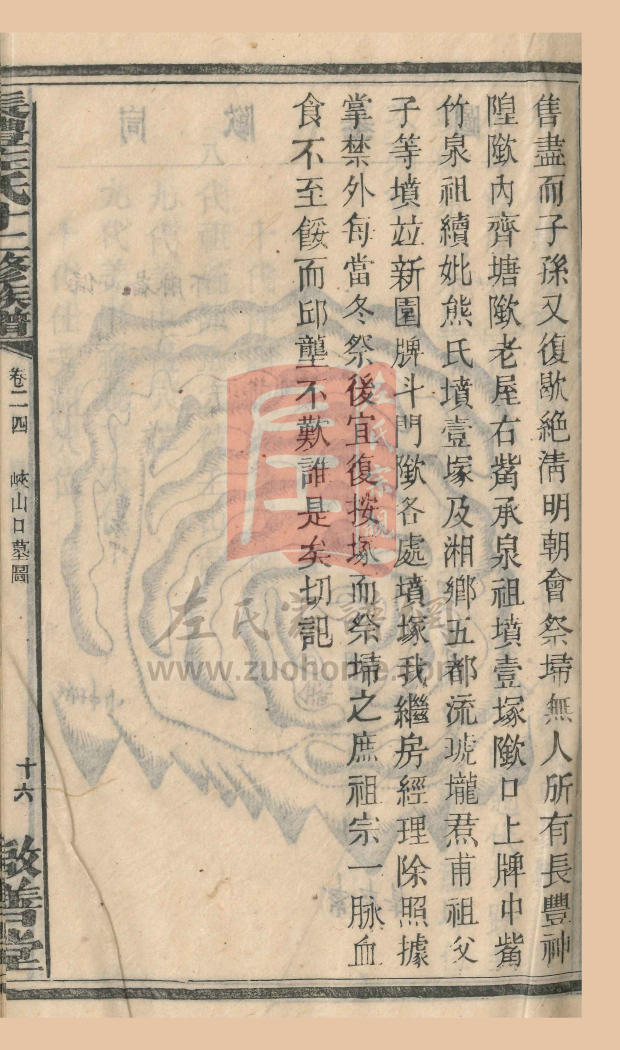 售盡而子孫又復歇絶淸明朝會祭埽無人所有長豐神
隍歘內齊塘歘老屋右觜承泉祖墳壹塚歘口上牌中觜
竹泉祖續妣熊氏墳壹塚及湘鄉五都流琥壠𤋮甫祖父
子等墳竝新園牌斗門歘各處墳塚我繼房經理除照據
掌禁外每當冬祭後宜復按塚而祭埽之庶祖宗一脉血
食不至餒而邱壟不歎誰是矣切記
長豐左氏十二修族譜
卷二四
峽山口墓圖
十六
啟善堂
左氏家譜網
www.zuohome.com